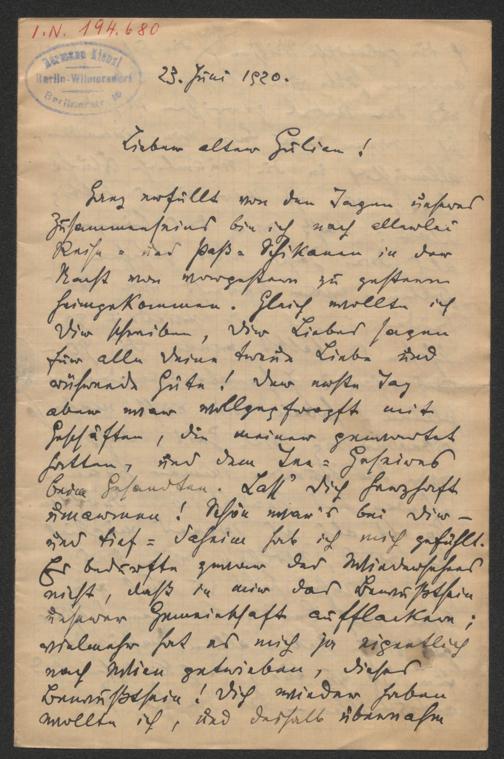 I.N. 194.680
Hermann Kienzl
Berlin-Wilmersdorf
Berlinerstr.
23. Juni 1920.
Lieber alter Julian!
Ganz erfüllt von den Tagen unseres
Zusammenseins bin ich nach allerlei
Reise- und Paß-Schikanen in der
Nacht von vorgestern zu gestern
heimgekommen. Gleich wollte ich
Dir schreiben, Dir Liebes sagen
für alle Deine treue Liebe und
rührende Güte! Der erste Tag
aber war vollgepfropft mit
Geschäften, die meiner gewartet
hatten, und dem
beim Gesandten. Lass' Dich herzhaft
umarmen! Schön war's bei Dir –
und tief-daheim hab ich mich gefühlt.
Es bedurfte zwar des Wiedersehens
nicht, daß in mir das Bewußtsein
unserer Gemeinschaft aufflackere;
vielmehr hat es mich ja eigentlich
nach Wien getrieben, dieses
Bewußtsein! Dich wieder haben
wollte ich, und deshalb übernahm